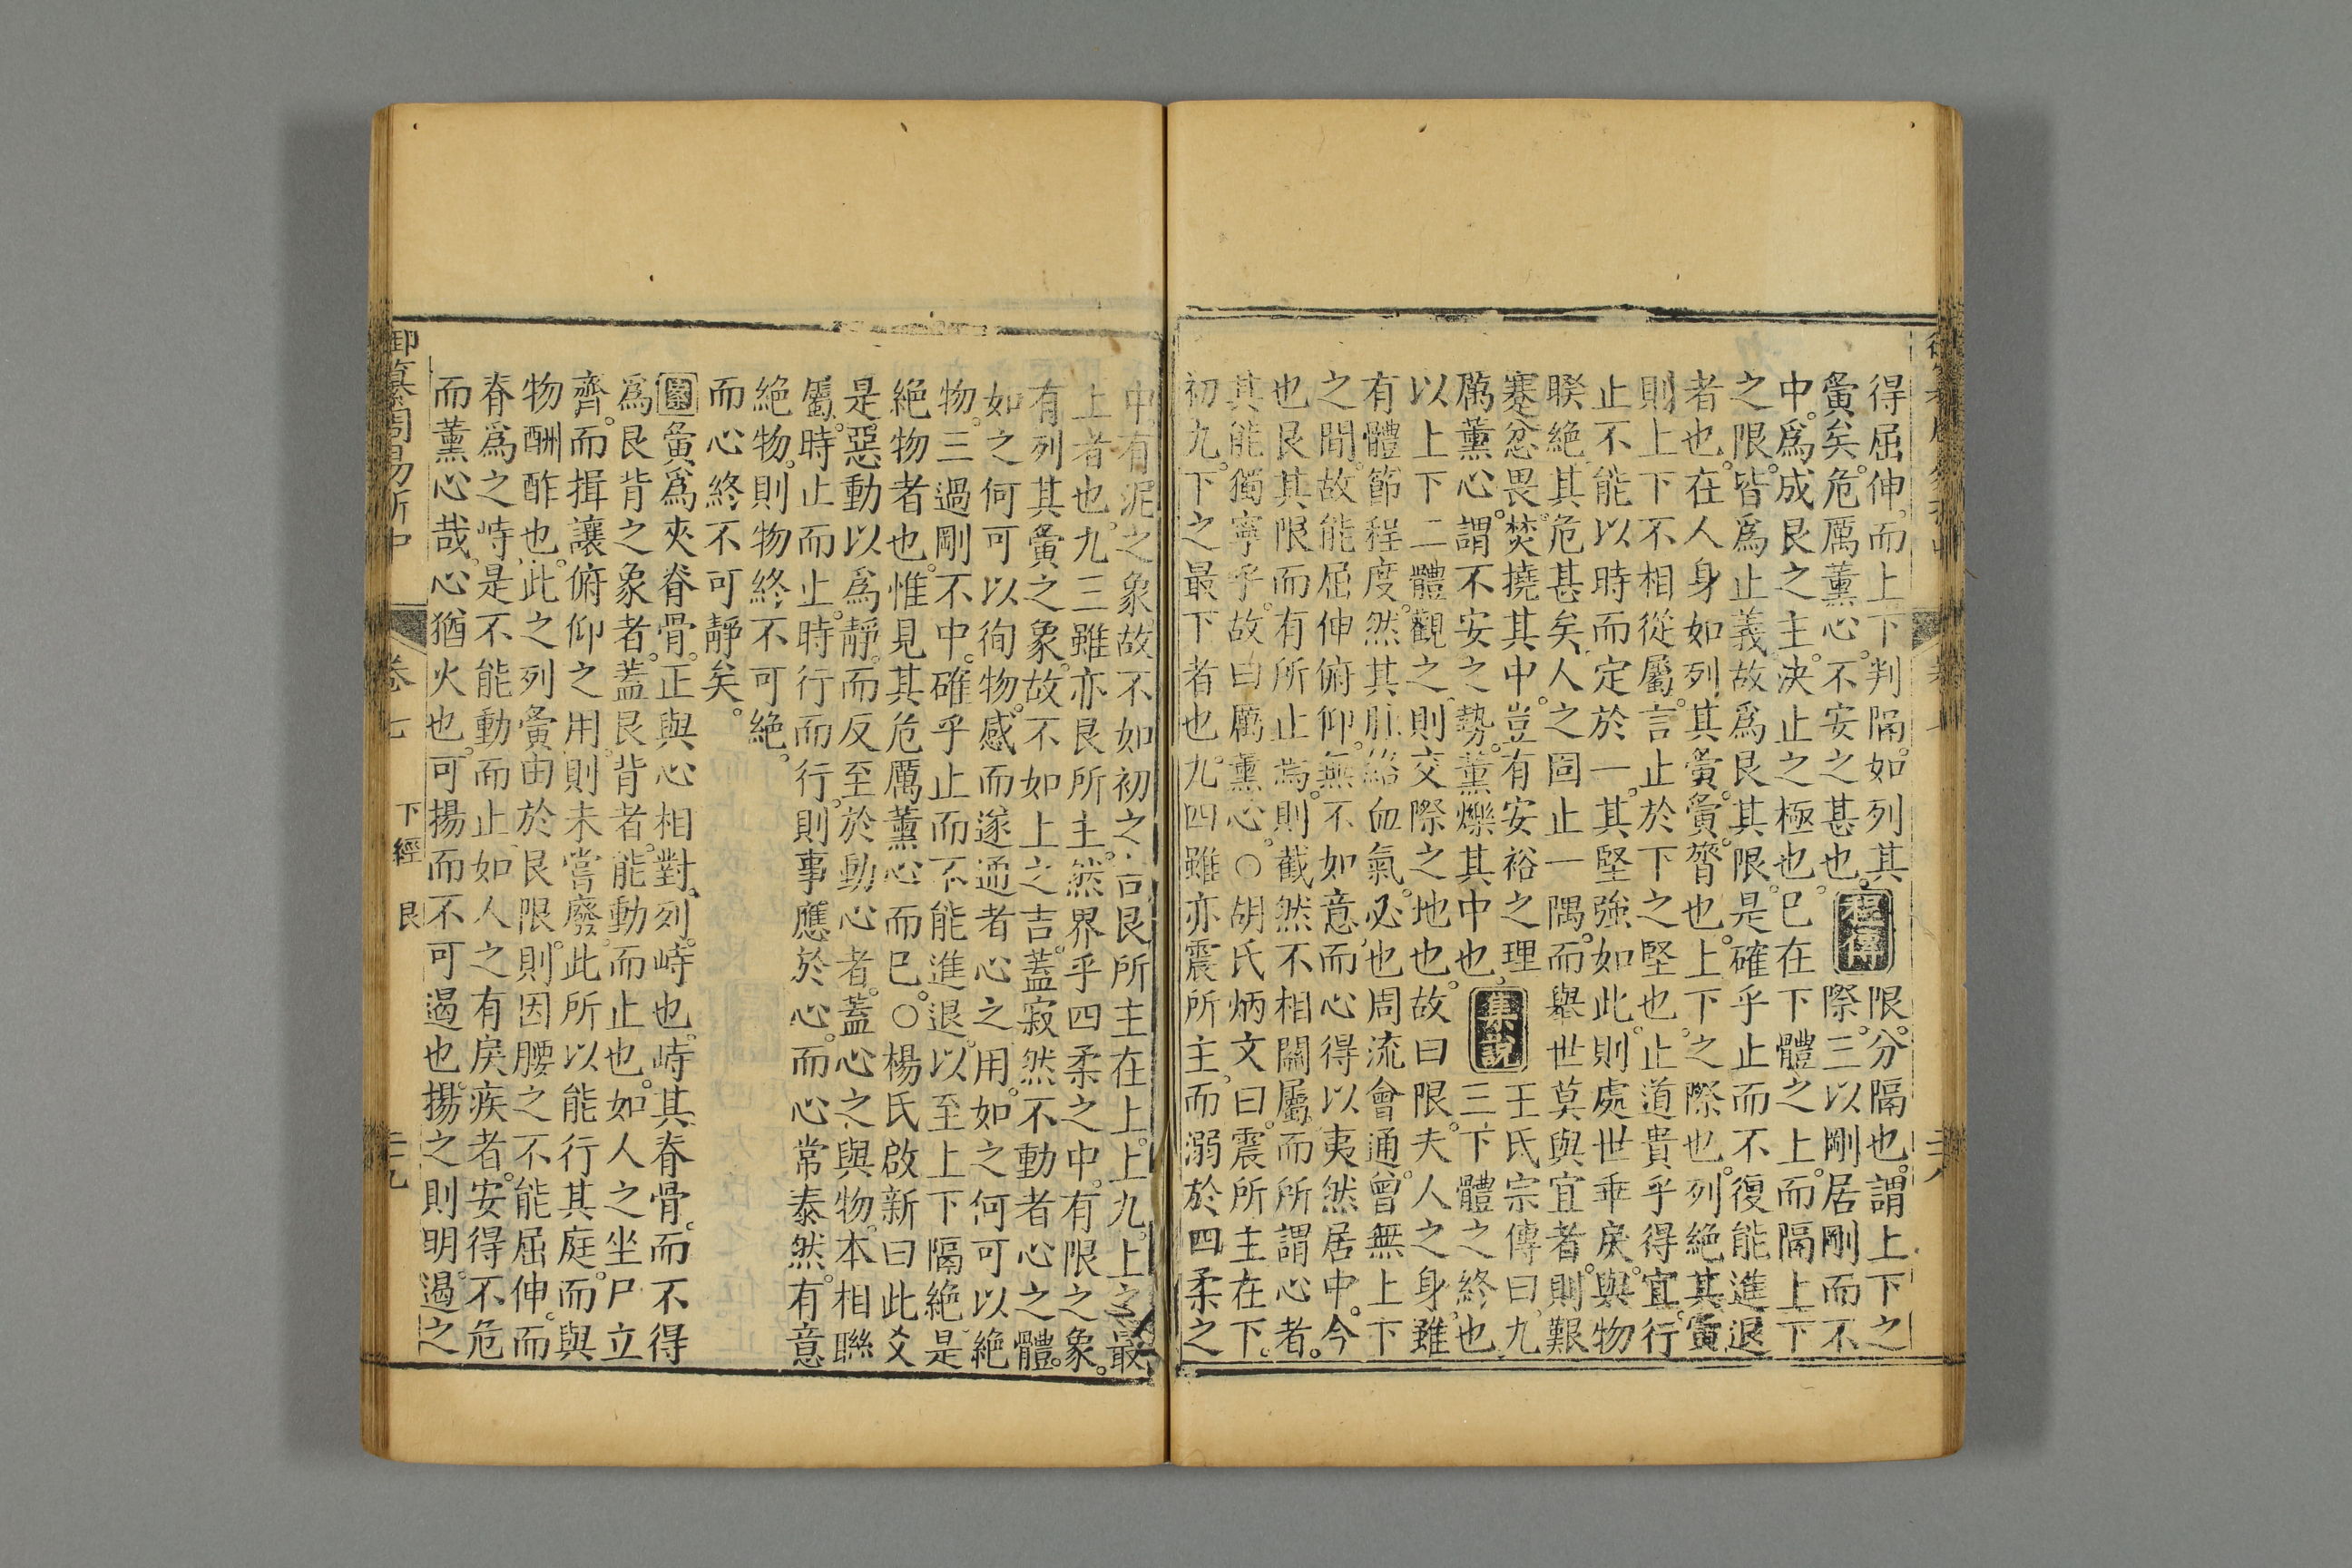 得屈伸而上下判隔如列其
夤矣。危厲薰心。不安之甚也。程傳
限。分隔也。謂上下之際。三以剛居剛而不
中。為成艮之主。決止之極也。已在下體之上。而隔上下
之限。皆為止義。故為艮其限。是確乎止而不復能進退
者也。在人身如列其夤。夤。膂也。上下之際也。列絕其夤。
則上下不相從屬。言止於下之堅也。止道貴乎得宜。行
止不能以時而定於一。其堅強如此。則處世乖戾。與物
睽絕。其危甚矣。人之固止一隅。而舉世莫與宜者。則艱
蹇忿畏。焚撓其中。豈有安裕之理。
厲薰心。謂不安之勢。薰爍其中也。集說
王氏宗傳曰。九三。下體之終也。
以上下二體觀之。則交際之地也。故曰限。夫人之身。雖
有體節程度。然其脈絡血氣。必也周流會通。曾無上下
之間。故能屈伸俯仰。無不如意。而心得以夷然居中。今
也艮其限而有所止焉。則截然不相關屬。而所謂心者。
其能獨寧乎。故曰厲熏心。○胡氏炳文曰。震所主在下。
初九。下之最下者也。九四雖亦震所主。而溺於四柔之
中。有泥之象。故不如初之吉。艮所主在上。上九。上之最
上者也。九三雖亦艮所主。然界乎四柔之中。有限之象。
有列其夤之象。故不如上之吉。蓋寂然不動者心之體。
如之何可以徇物。感而遂通者心之用。如之何可以絕
物。三過剛不中。確乎止而不能進退。以至上下隔絕。是
絕物者也。惟見其危厲薰心而已。○楊氏啟新曰。此爻
是惡動以為靜。而反至於動心者。蓋心之與物。本相聯
屬。時止而止。時行而行。則事應於心。而心常泰然。有意
絕物。則物終不可絕。
而心終不可靜矣。
案 夤為夾脊骨。正與心相對。列。峙也。峙其脊骨。而不得
為艮背之象者。蓋艮背者。能動而止也。如人之坐尸立
齊。而揖讓俯仰之用。則未嘗廢。此所以能行其庭。而與
物酬酢也。此之列夤由於艮限。則因腰之不能屈伸。而
脊為之峙。是不能動而止。如人之有戾疾者。安得不危
而薰心哉。心猶火也。可揚而不可遏也。揚之則明。遏之
御纂周易折中
卷七
下經 艮
三九